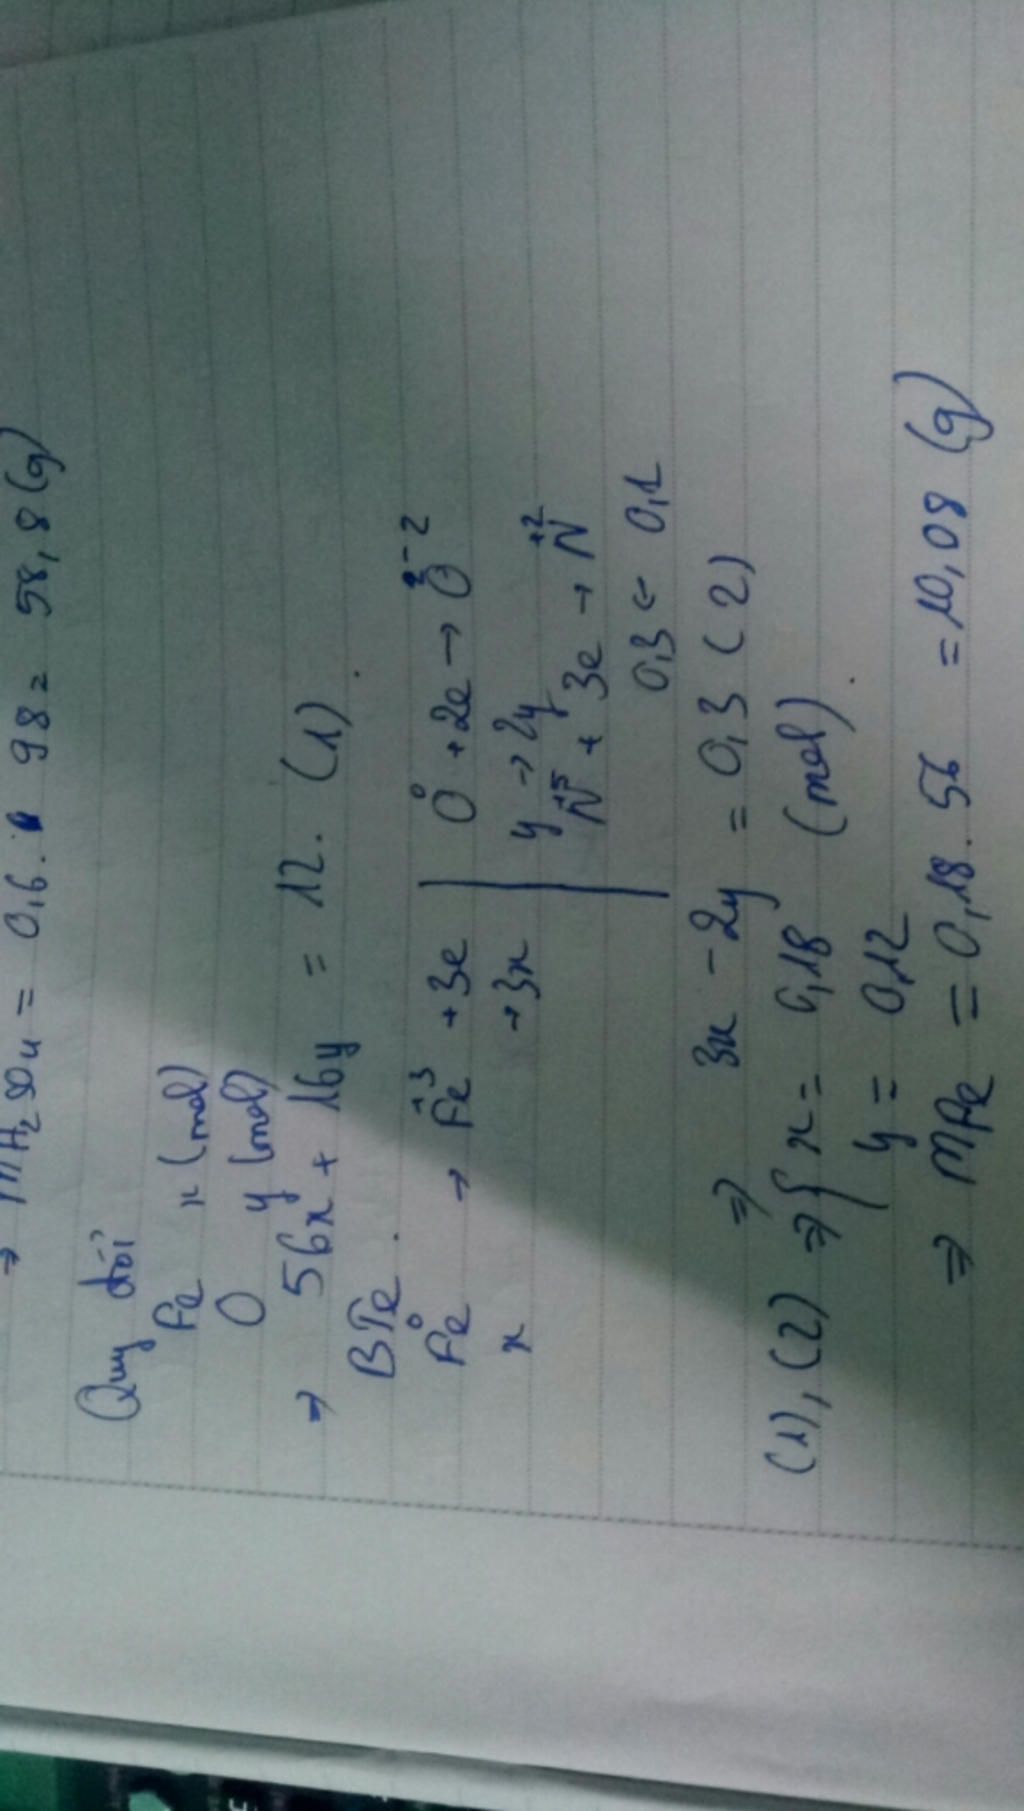 ⇒ mH₂SO₄ = 0,6 . 98 = 58,8 (g)
Quy đổi
Fe x (mol)
O y (mol)
⇒ 56x + 16y = 12. (1)
BTe.
Fe⁰ → Fe⁺³ + 3e | O⁰ + 2e → O⁻²
x → 3x | y → 2y
N⁺⁵ + 3e → N⁺²
0,3 ← 0,1
⇒ 3x - 2y = 0,3 (2)
(1), (2) ⇒ { x = 0,18 (mol)
y = 0,12
⇒ mFe = 0,18 . 56 = 10,08 (g)